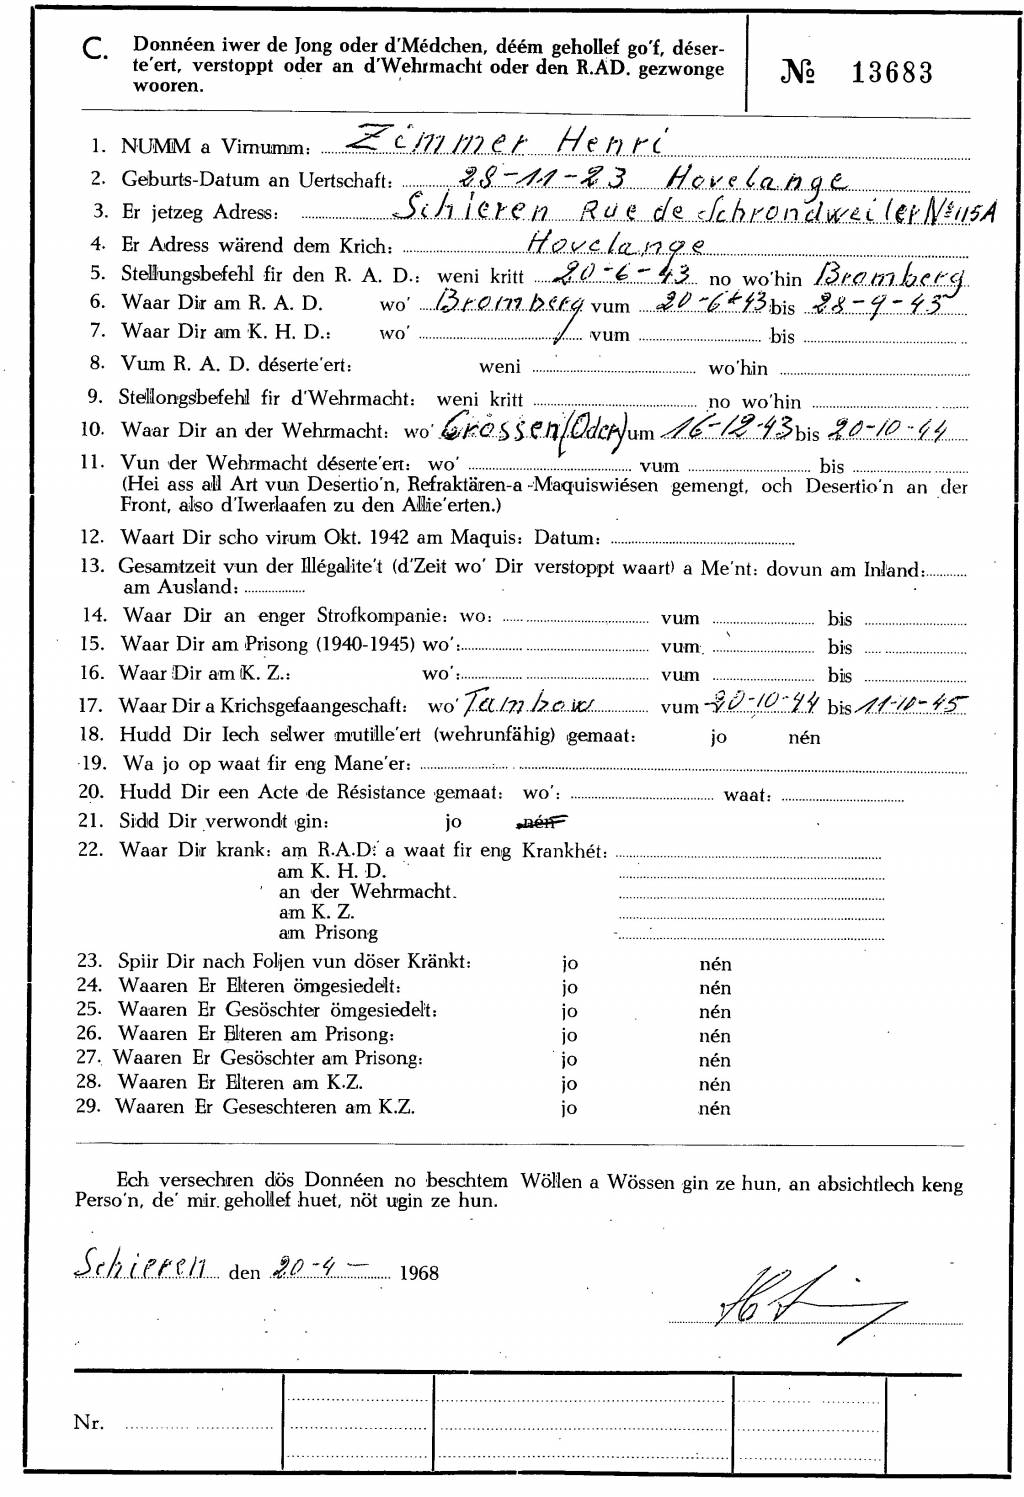 C. Donnéen iwer de Jong oder d'Médchen, déém gehollef go'f, déser-
te'ert, verstoppt oder an d'Wehrmacht oder den R.AD. gezwonge
wooren.
№ 13683
1. NUMM a Virnumm: Zimmer Henri
2. Geburts-Datum an Uertschaft: 28-11-23 Hovelange
3. Er jetzeg Adress: Schieren Rue de Schrondweiler N° 115A
4. Er Adress wärend dem Krich: Hovelange
5. Stellungsbefehl fir den R. A. D.: weni kritt 20-6-43 no wo'hin Bromberg
6. Waar Dir am R. A. D. wo' Bromberg vum 20-6-43 bis 28-9-43
7. Waar Dir am K. H. D.: wo' / vum bis
8. Vum R. A. D. déserte'ert: weni wo'hin
9. Stellongsbefehl fir d'Wehrmacht: weni kritt no wo'hin
10. Waar Dir an der Wehrmacht: wo' Crossen (Oder) um 16-12-43 bis 20-10-44
11. Vun der Wehrmacht déserte'ert: wo' vum bis
(Hei ass all Art vun Desertio'n, Refraktären-a -Maquiswiésen gemengt, och Desertio'n an der
Front, also d'Iwerlaafen zu den Allie'erten.)
12. Waart Dir scho virum Okt. 1942 am Maquis: Datum:
13. Gesamtzeit vun der Illégalite't (d'Zeit wo' Dir verstoppt waart) a Me'nt: dovun am Inland:
am Ausland:
14. Waar Dir an enger Strofkompanie: wo: vum bis
15. Waar Dir am Prisong (1940-1945) wo': vum bis
16. Waar Dir am K. Z.: wo': vum bis
17. Waar Dir a Krichsgefaangeschaft: wo' Tambow vum 20-10-44 bis 11-10-45
18. Hudd Dir Iech selwer mutille'ert (wehrunfähig) gemaat: jo nén
19. Wa jo op waat fir eng Mane'er:
20. Hudd Dir een Acte de Résistance gemaat: wo': waat:
21. Sidd Dir verwondt gin: jo nén
22. Waar Dir krank: am R.A.D: a waat fir eng Krankhét:
am K. H. D.
an der Wehrmacht.
am K. Z.
am Prisong
23. Spiir Dir nach Foljen vun döser Kränkt: jo nén
24. Waaren Er Elteren ömgesiedelt: jo nén
25. Waaren Er Gesöschter ömgesiedelt: jo nén
26. Waaren Er Elteren am Prisong: jo nén
27. Waaren Er Gesöschter am Prisong: jo nén
28. Waaren Er Elteren am K.Z. jo nén
29. Waaren Er Geseschteren am K.Z. jo nén
Ech versechren dös Donnéen no beschtem Wöllen a Wössen gin ze hun, an absichtlech keng
Perso'n, de' mir gehollef huet, nöt ugin ze hun.
Schieren den 20-4- 1968
Nr.